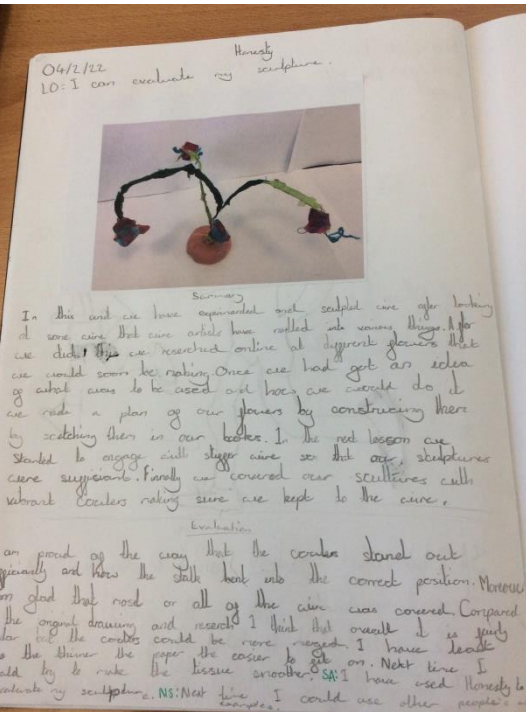 Honesty
04/2/22
LO: I can evaluate my sculpture.
Summary
In this unit we have experimented and sculpted wire after looking
at some wire that wire artists have modled into various things. After
we did this we reserched online at different flowers that
we would soon be making. Once we had got an idea
of what was to be used and how we would do it
we made a plan of our flowers by construcing them
by scetching them in our books. In the next lesson we
started to engage with stiffer wire so that our sculptures
were suffisiant. Finnally we covered our scultures with
vibrant coulers making sure we kept to the wire.
Evaluation
am proud of the way that the coulers stand out
efficiantly and how the stalk bent into the correct position. Moreover
glad that most or all of the wire was covered. Compared
the original drawing and reserch I think that overall it is fairly
but the coulers could be more merged. I have
the thinner the paper the easier to get on. Next time I
try to make the tissue smoother. SA: I have used Honesty to
evaluate my sculpture. NS: Next time I could use other people's
examples.